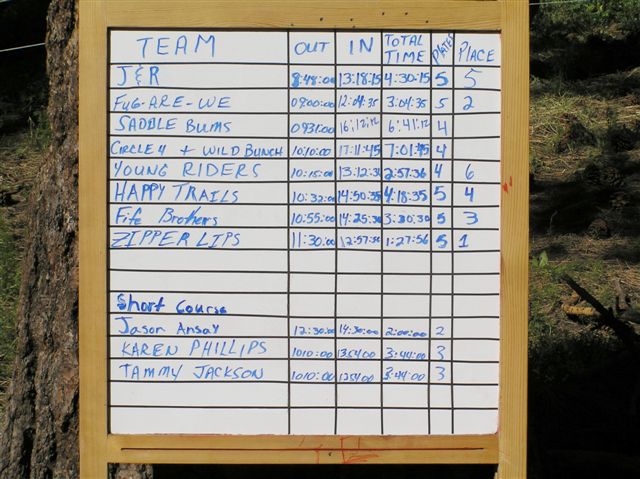 TEAM OUT IN TOTAL TIME PLATES PLACE
J&R 8:48:00 13:18:15 4:30:15 5 5
FUG-ARE-WE 09:00:00 12:04:35 3:04:35 5 2
SADDLE BUMS 0931:00 16:12:12 6:41:12 4
CIRCLE 4 + WILD BUNCH 10:10:00 17:11:45 7:01:45 4
YOUNG RIDERS 10:15:00 13:12:36 2:57:36 4 6
HAPPY TRAILS 10:32:00 14:50:35 4:18:35 5 4
Fife Brothers 10:55:00 14:25:30 3:30:30 5 3
ZIPPER LIPS 11:30:00 12:57:56 1:27:56 5 1
Short Course
Jason Ansay 12:30:00 14:30:00 2:00:00 2
KAREN PHILLIPS 1010:00 1354:00 3:44:00 3
TAMMY JACKSON 1010:00 1354:00 3:44:00 3